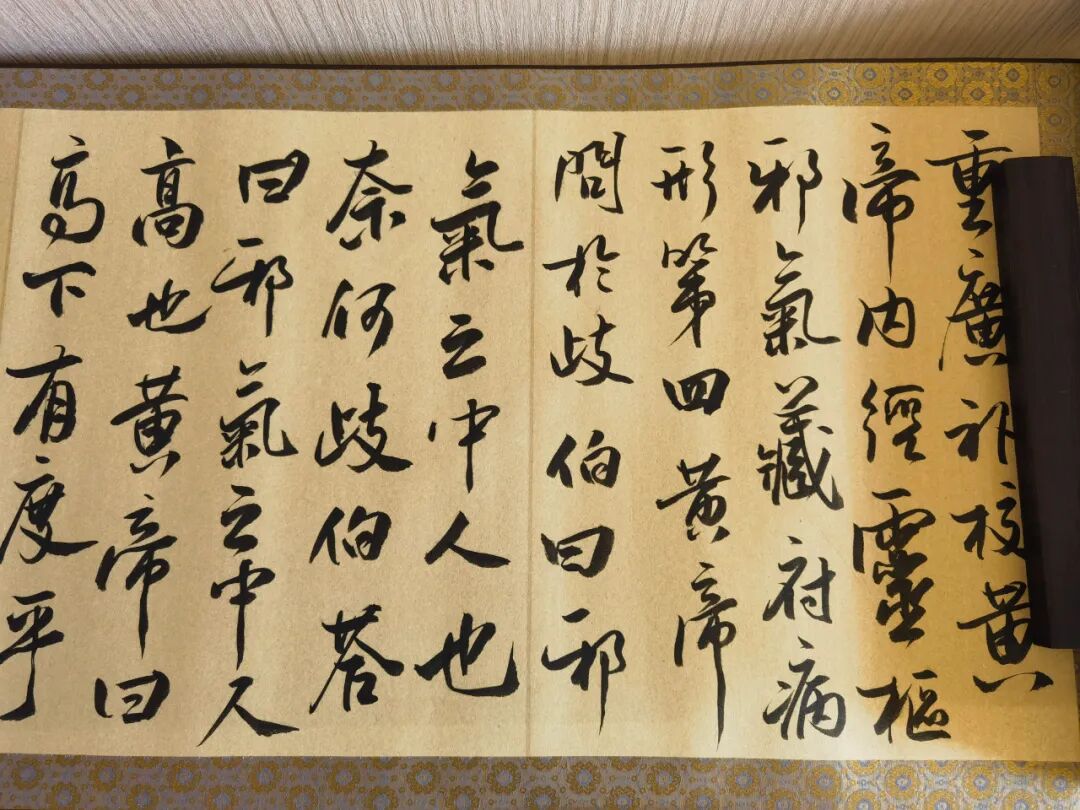 重廣補校黃
帝內經靈樞
邪氣藏府病
形第四黃帝
問於歧伯曰邪
氣之中人也
奈何歧伯荅
曰邪氣之中人
高也黃帝曰
高下有度乎